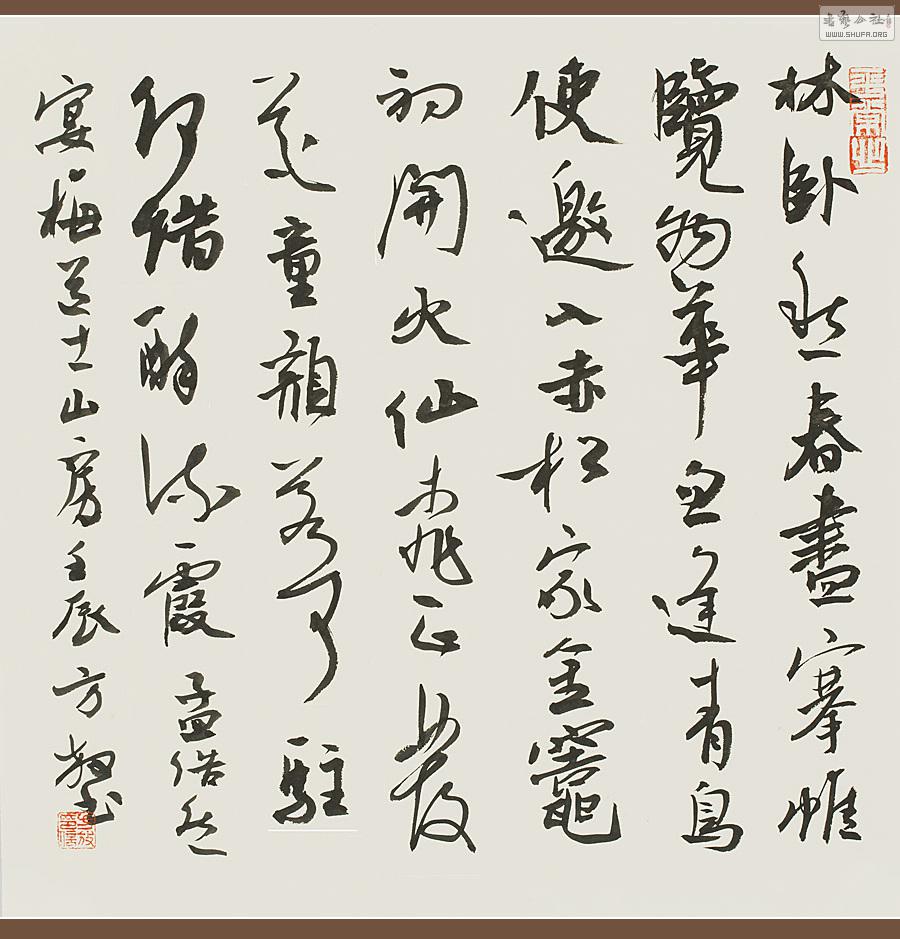 林卧愁春盡搴帷
覽物華忽逢青鳥
使邀入赤松家金竈
初開火仙桃正發
花童顏若可駐
何惜醉流霞孟浩然
宴梅道士山房壬辰方
書藝公社
WWW.SHUFA.ORG